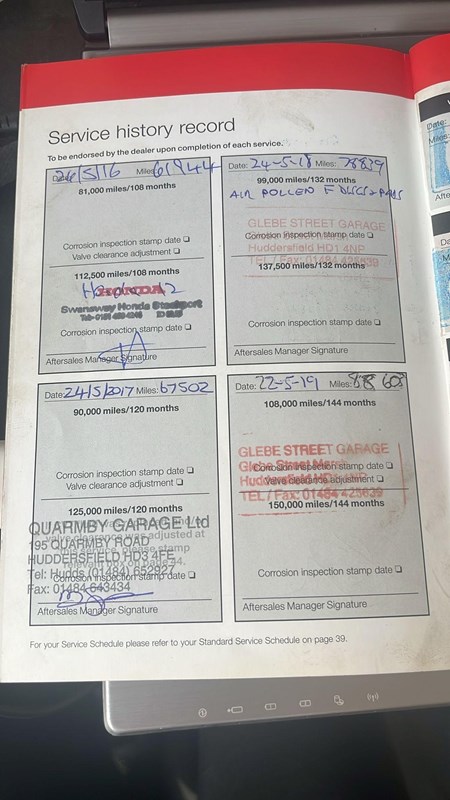 Service history record
To be endorsed by the dealer upon completion of each service.
Date: 24/5/16 Miles: 61944
81,000 miles/108 months
Corrosion inspection stamp date
Valve clearance adjustment
112,500 miles/108 months
HONDA
Swansway Honda Stockport
Corrosion inspection stamp date
Aftersales Manager Signature
Date: 24-5-18 Miles: 78839
99,000 miles/132 months
AIR POLLEN F DISCS & PADS
GLEBE STREET GARAGE
Corrosion inspection stamp date
Huddersfield HD1 4NP
TEL / Fax: 01484 425639
137,500 miles/132 months
Corrosion inspection stamp date
Aftersales Manager Signature
Date: 24/5/2017 Miles: 67502
90,000 miles/120 months
Corrosion inspection stamp date
Valve clearance adjustment
125,000 miles/120 months
QUARMBY GARAGE Ltd
195 QUARMBY ROAD
HUDDERSFIELD HD3 4FE
Tel: Hudds (01484) 652927
Corrosion inspection stamp date
Fax: 01484 643434
Aftersales Manager Signature
Date: 22-5-19 Miles: 88 603
108,000 miles/144 months
GLEBE STREET GARAGE
Corrosion inspection stamp date
Valve clearance adjustment
TEL / Fax: 01484 425639
150,000 miles/144 months
Corrosion inspection stamp date
Aftersales Manager Signature
For your Service Schedule please refer to your Standard Service Schedule on page 39.
Date:
Miles: